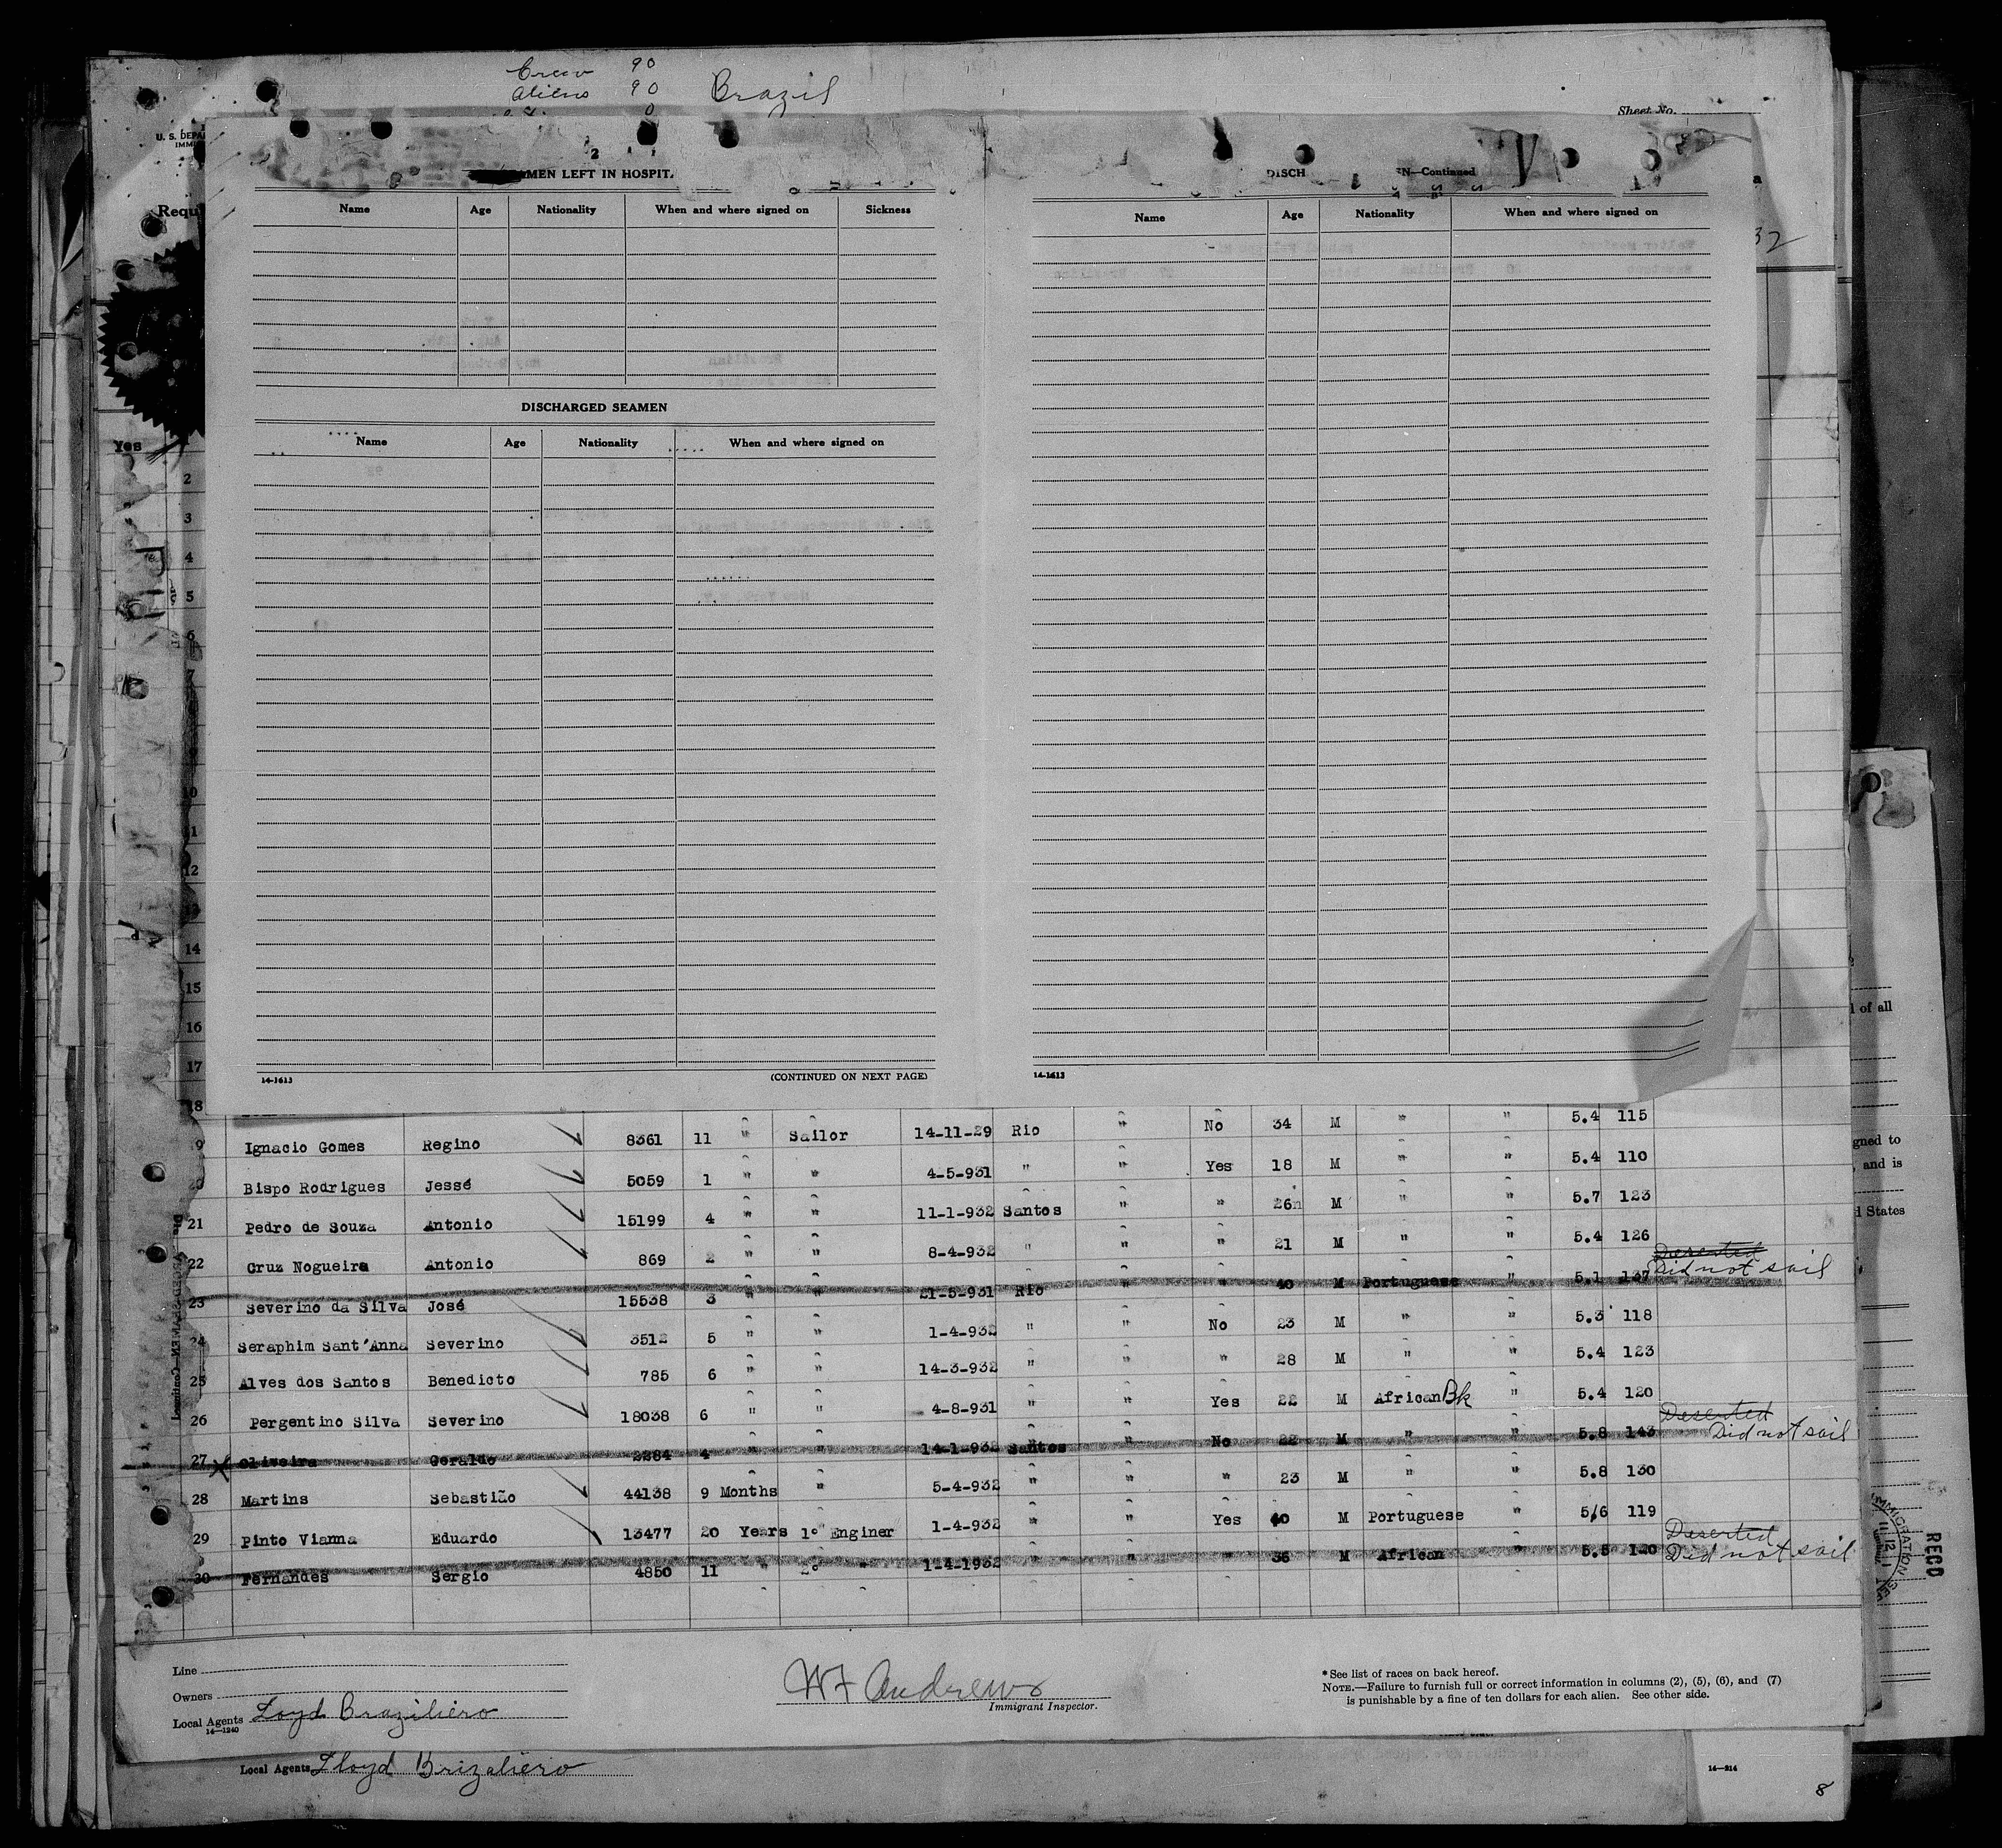 Crew 90
Aliens 90 Brazil
0
Sheet No.
U. S. DEPA
IMM
2
MEN LEFT IN HOSPIT
Name Age Nationality When and where signed on Sickness
DISCHARGED SEAMEN
Name Age Nationality When and where signed on
14-1613 (CONTINUED ON NEXT PAGE)
DISCH EN—Continued
Name Age Nationality When and where signed on
14-1613
Requ
32
Yes
2
3
4
5
6
7
10
11
12
13
14
15
16
17
18
9 Ignacio Gomes Regino 8361 11 " Sailor 14-11-29 Rio " No 34 M " " 5.4 115
Bispo Rodrigues Jessé 5059 1 " " 4-5-931 " " Yes 18 M " " 5.4 110
21 Pedro de Souza Antonio 15199 4 " " 11-1-932 Santos " " 26 M " " 5.7 123
22 Cruz Nogueira Antonio 869 2 " " 8-4-932 " " " 21 M " " 5.4 126
23 Severino da Silva José 15538 3 " " 21-5-931 Rio " " 40 M Portuguese " 5.1 137 Deserted
Did not sail
24 Seraphim Sant'Anna Severino 3512 5 " " 1-4-932 " " No 23 M " " 5.3 118
25 Alves dos Santos Benedicto 785 6 " " 14-3-932 " " " 28 M " " 5.4 123
26 Pergentino Silva Severino 18038 6 " " 4-8-931 " " Yes 22 M African Bk " 5.4 120
27 X Oliveira Geraldo 2284 4 " " 14-1-932 Santos " No 22 M " " 5.8 143 Deserted
Did not sail
28 Martins Sebastião 44138 9 Months " 5-4-932 " " " 23 M " " 5.8 130
29 Pinto Vianna Eduardo 13477 20 Years 1º Enginer 1-4-932 " " Yes 40 M Portuguese " 5/6 119
30 Fernandes Sergio 4850 11 " 2º " 1-4-1932 " " " 36 M African " 5.5 120 Deserted
Did not sail
Line
Owners
Local Agents Loyd Braziliero
14—1240
W F Andrews
Immigrant Inspector.
* See list of races on back hereof.
NOTE.—Failure to furnish full or correct information in columns (2), (5), (6), and (7)
is punishable by a fine of ten dollars for each alien. See other side.
Local Agents Lloyd Brizaliero
14—214
8
l of all
gned to
, and is
d States
RECD